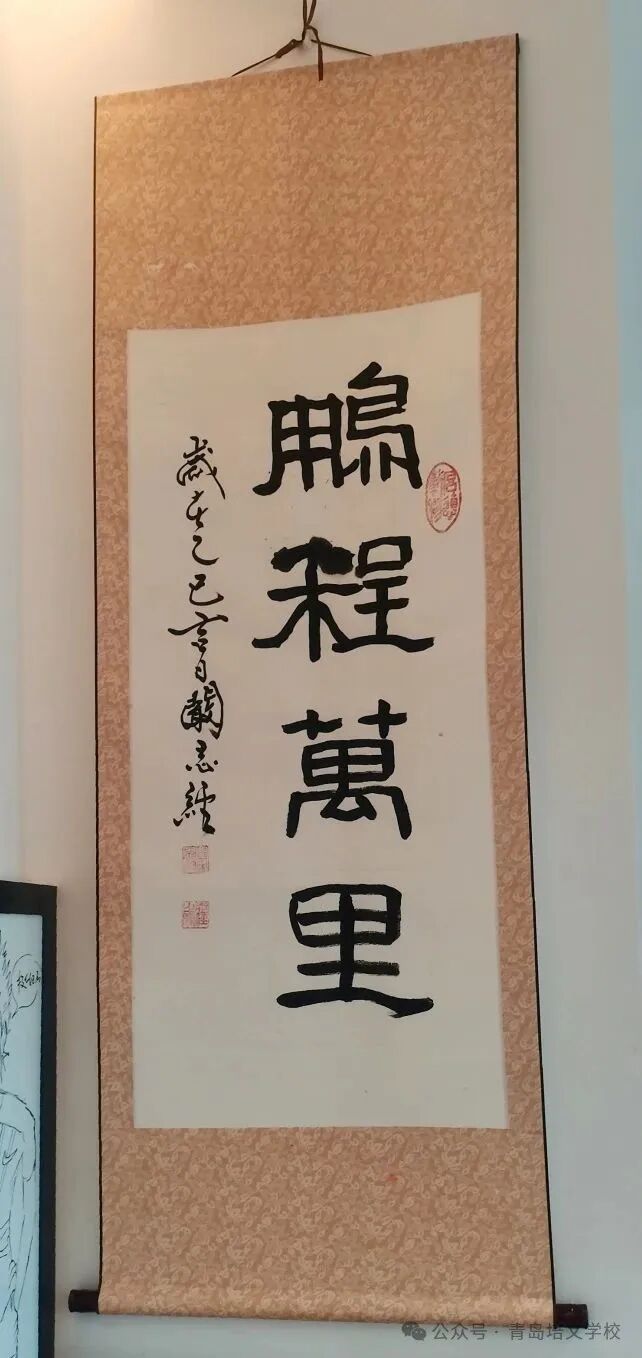 鵬程萬里
歲在乙巳言日國志經
公众号 · 青岛培文学校